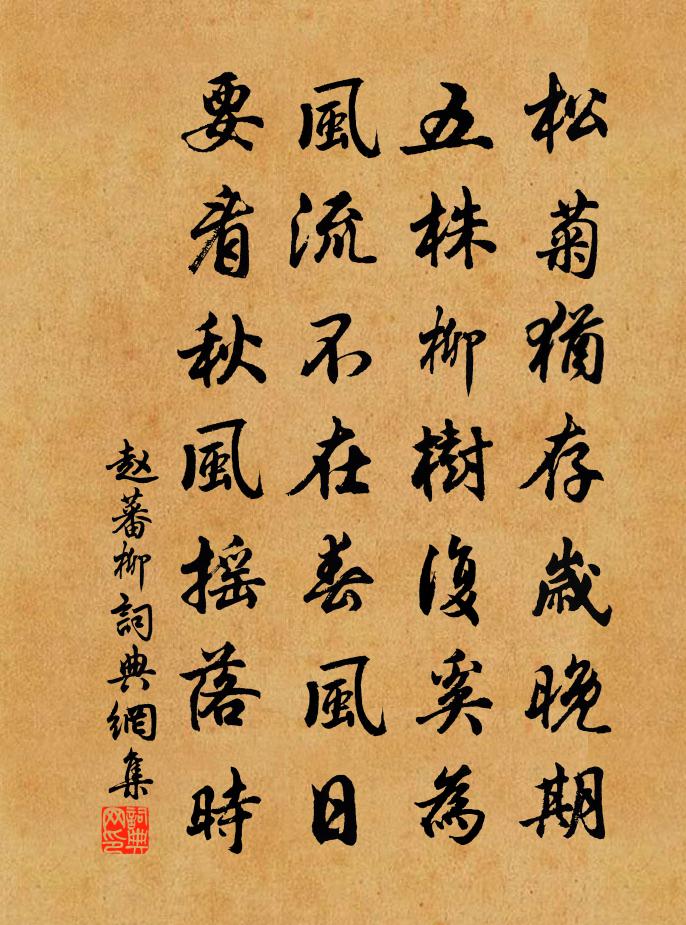 松菊猶存歲晚期
五株柳樹復奚為
風流不在春風日
要看秋風搖落時
赵蕃柳詞典網集
詞典网印